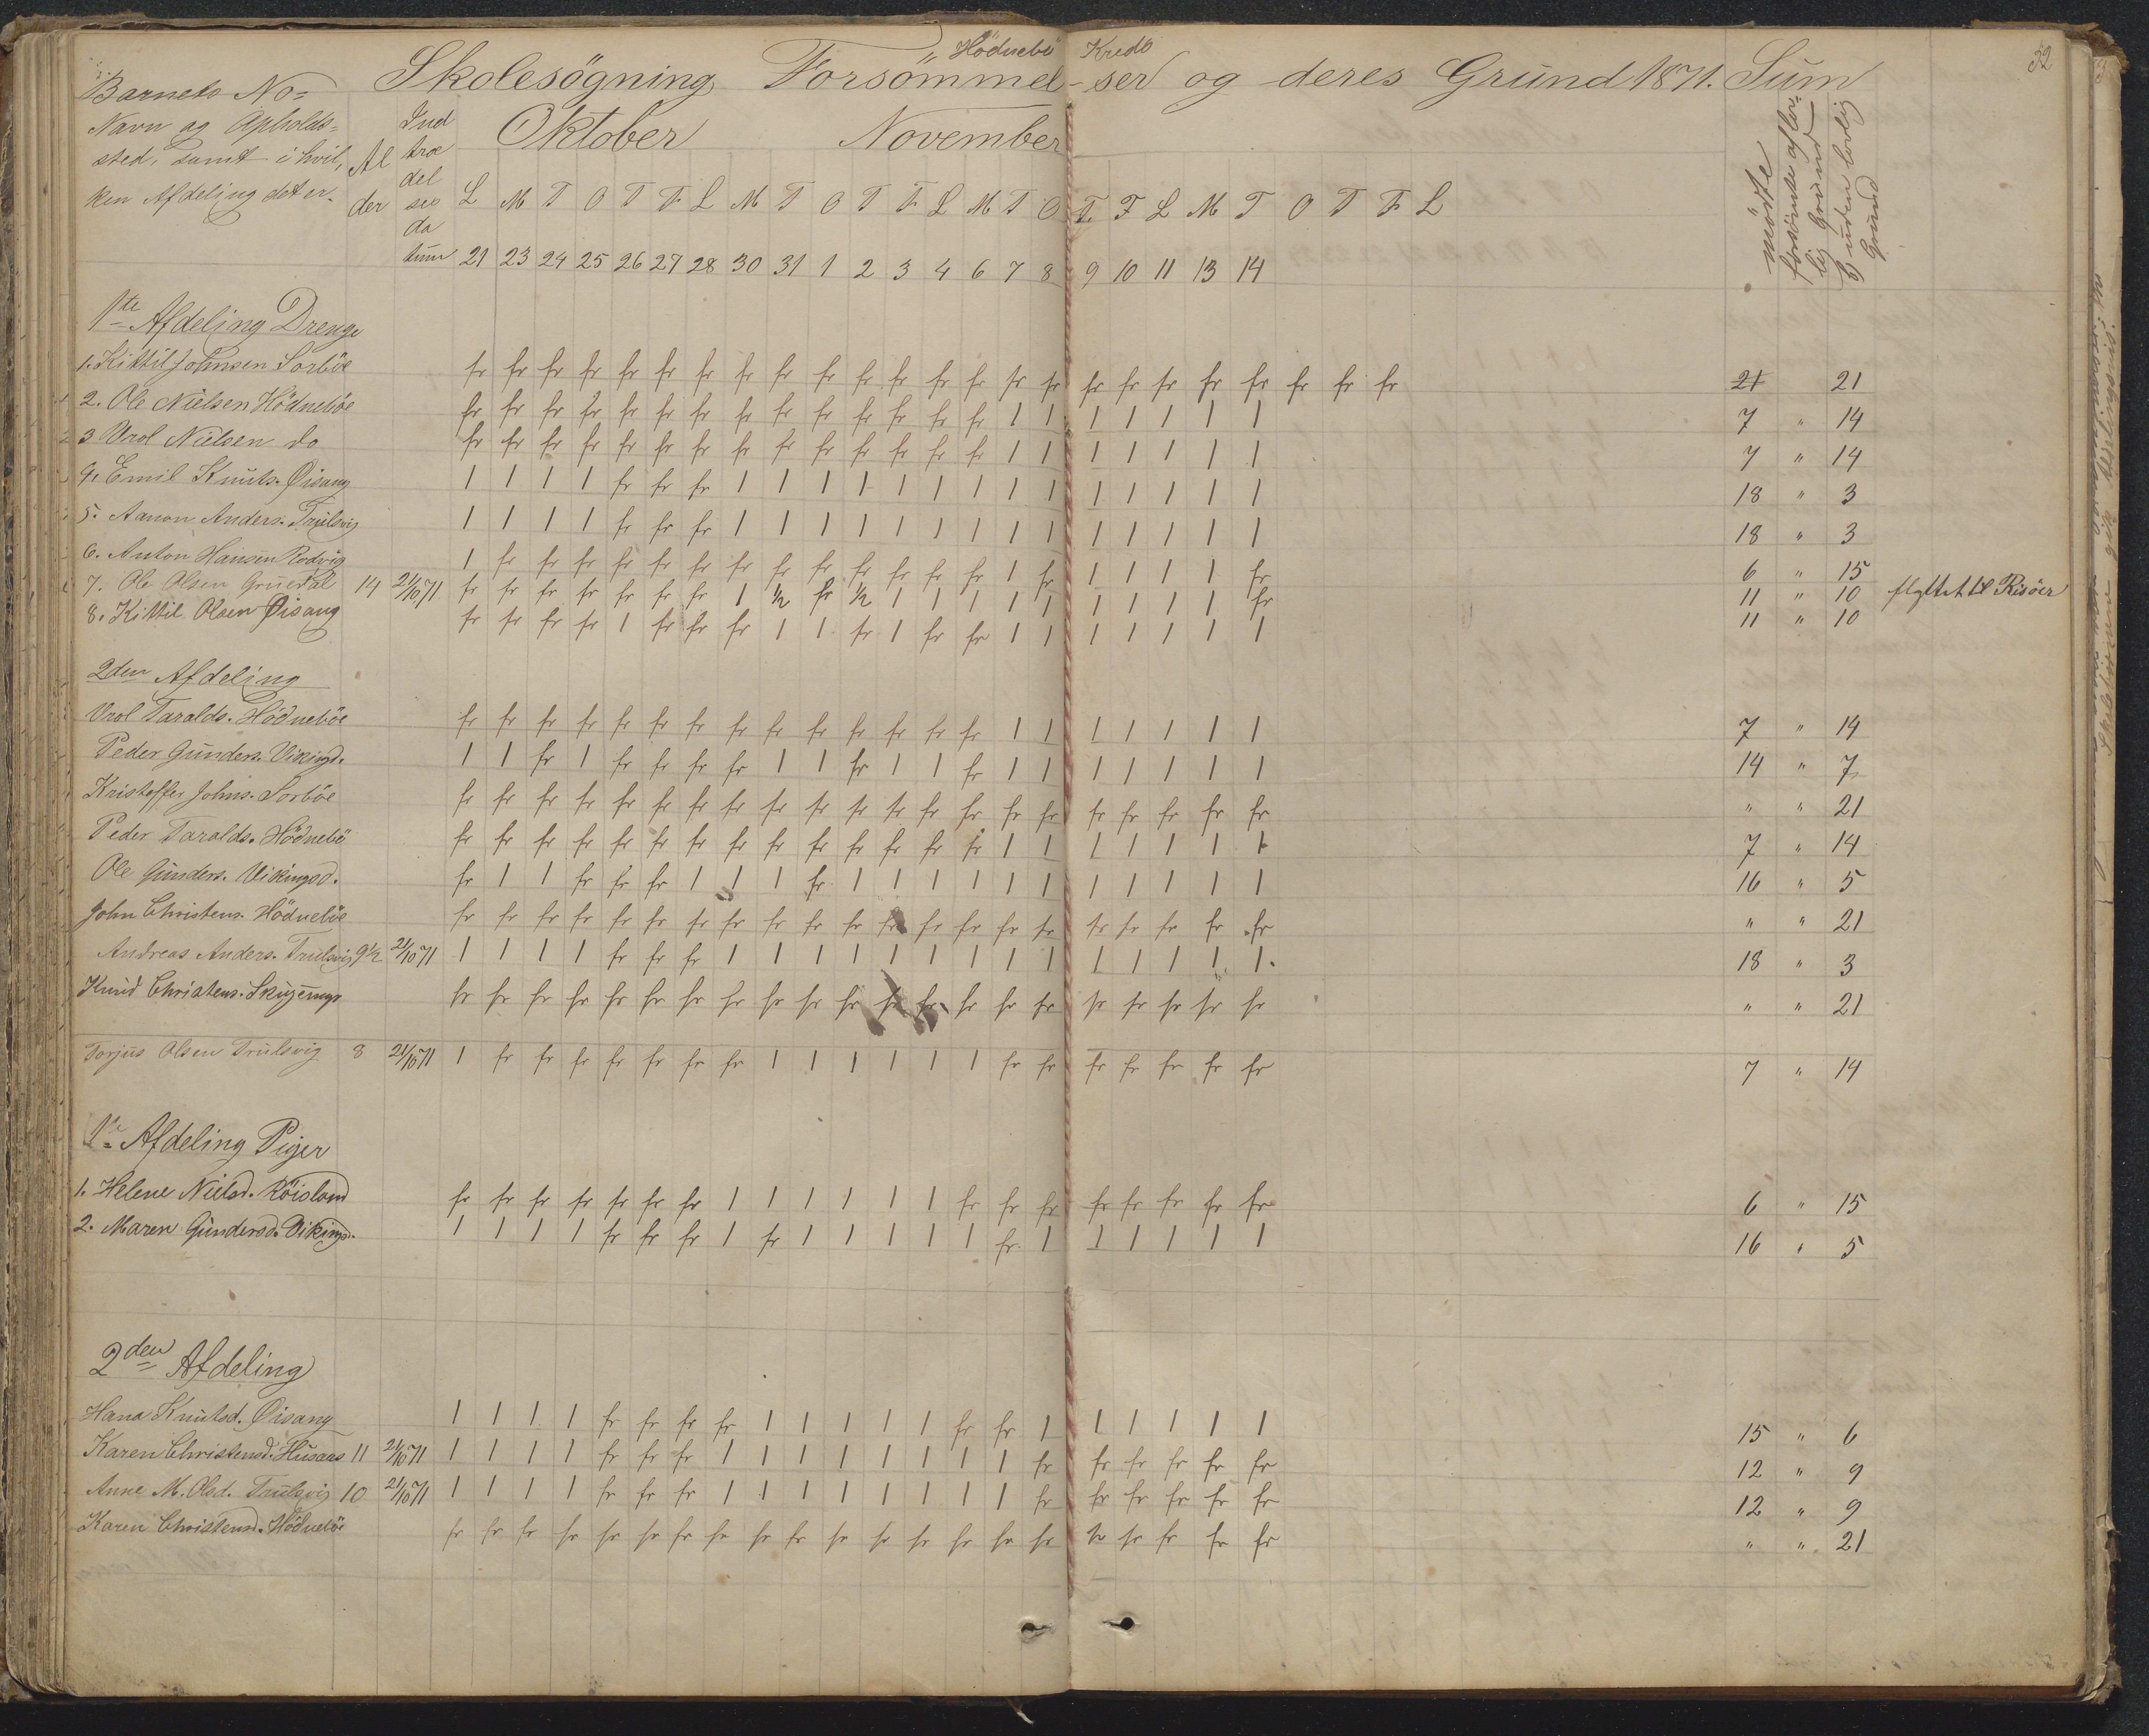 Hödnebö Kreds
52
Skolesögning Forsömmel-ser og deres Grund 1871. Sum
Barnets No=
Navn og Opholds=
sted, samt i hvil,
ken Afdeling det er.
Al
der
Ind
træ
del
ses
da
tum
Oktober November
L M T O T F L M T O T F L M T O T. F L M T O T F L
21 23 24 25 26 27 28 30 31 1 2 3 4 6 7 8 9 10 11 13 14
mödte
forsömte af lov=
lig Grund
uden lovlig
Grund
1te Afdeling Drenge
1. Kittil Johnsen Sorböe fr fr fr fr fr fr fr fr fr fr fr fr fr fr fr fr fr fr fr fr fr fr fr fr 21 21
2. Ole Nielsen Hödneböe fr fr fr fr fr fr fr fr fr fr fr fr fr fr 1 1 1 1 1 1 1 7 " 14
3 Vrol Nielsen do fr fr fr fr fr fr fr fr fr fr fr fr fr fr 1 1 1 1 1 1 1 7 " 14
4. Emil Knuts. Öisang 1 1 1 1 fr fr fr 1 1 1 1 1 1 1 1 1 1 1 1 1 1 18 " 3
5. Aanon Anders. Trulsvig 1 1 1 1 fr fr fr 1 1 1 1 1 1 1 1 1 1 1 1 1 1 18 " 3
6. Anton Hansen Rodvig 1 fr fr fr fr fr fr fr fr fr fr fr fr fr 1 fr 1 1 1 1 fr 6 " 15
7. Ole Olsen Gruerdal 14 21/10 71 fr fr fr fr fr fr fr 1 ½ fr ½ 1 1 1 1 1 1 1 1 1 fr 11 " 10 flyttet til Risöer
8. Kittil Olsen Öisang fr fr fr fr 1 fr fr fr 1 1 fr 1 fr fr 1 1 1 1 1 1 1 11 " 10
2den Afdeling
Vrol Taralds. Hödneböe fr fr fr fr fr fr fr fr fr fr fr fr fr fr 1 1 1 1 1 1 1 7 " 14
Peder Gunders. Vikingd. 1 1 fr 1 fr fr fr fr 1 1 fr 1 1 fr 1 1 1 1 1 1 1 14 " 7
Kristoffer Johns. Sorböe fr fr fr fr fr fr fr fr fr fr fr fr fr fr fr fr fr fr fr fr fr " " 21
Peder Taralds. Hödnebö fr fr fr fr fr fr fr fr fr fr fr fr fr fr 1 1 1 1 1 1 1 7 " 14
Ole Gunders. Vikingsd. fr 1 1 fr fr fr 1 1 1 fr 1 1 1 1 1 1 1 1 1 1 1 16 " 5
John Christens. Hödneböe fr fr fr fr fr fr fr fr fr fr fr fr fr fr fr fr fr fr fr fr fr " " 21
Andreas Anders. Trulsvig 9½ 21/10 71 1 1 1 1 fr fr fr 1 1 1 1 1 1 1 1 1 1 1 1 1 1 18 " 3
Knud Christens. fr fr fr fr fr fr fr fr fr fr fr fr fr fr fr fr fr fr fr fr fr " " 21
Torjus Olsen Trulsvig 8 21/10 71 1 fr fr fr fr fr fr fr 1 1 1 1 1 1 fr fr fr fr fr fr fr 7 " 14
1te Afdeling Piger
1. Helene Nielsd. Röisland fr fr fr fr fr fr fr 1 1 1 1 1 1 fr fr fr fr fr fr fr fr 6 " 15
2. Maren Gundersd. Vikingd. 1 1 1 1 fr fr fr 1 fr 1 1 1 1 1 fr 1 1 1 1 1 1 16 " 5
2den Afdeling
Hana Knutsd. Öisang 1 1 1 1 fr fr fr fr 1 1 1 1 1 fr fr 1 1 1 1 1 1 15 " 6
Karen Christensd. Husaas 11 21/10 71 1 1 1 1 fr fr fr 1 1 1 1 1 1 1 1 fr fr fr fr fr fr 12 " 9
Anne M. Olsd. Trulsvig 10 21/10 71 1 1 1 1 fr fr fr 1 1 1 1 1 1 1 1 fr fr fr fr fr fr 12 " 9
Karen Christensd. Hödneböe fr fr fr fr fr fr fr fr fr fr fr fr fr fr fr fr fr fr fr fr fr " " 21